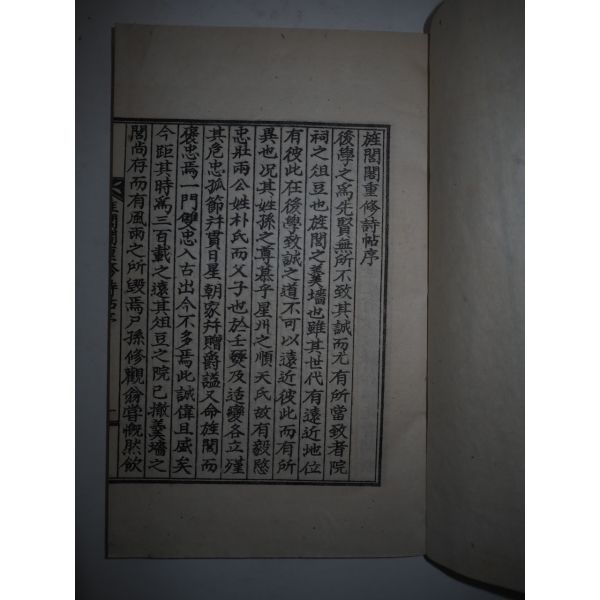 旌閭閣重修詩帖序
後學之爲先賢無所不致其誠而尤有所當致者院
祠之俎豆也旌閭之羹墻也雖其世代有遠近地位
有彼此在後學致誠之道不可以遠近彼此而有所
異也况其姓孫之尊慕乎星州之順天氏故有毅愍
忠壯兩公姓朴氏而父子也於壬癸及适變各立殣
其危忠孤節幷貫日星朝家幷贈爵謚又命旌閭而
褒忠焉一門雙忠入古出今不多焉此誠偉且盛矣
今距其時爲三百載之遠其俎豆之院已撤羹墻之
閭尚存而有風雨之所毁焉尸孫修觀翁嘗慨然飮
旌閭閣重修詩帖序